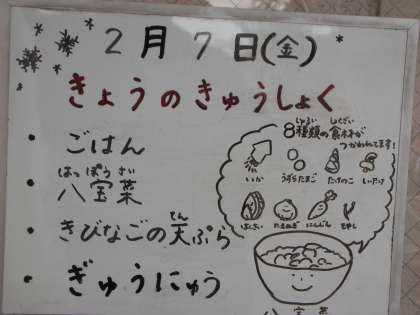 2月7日(金)
きょうのきゅうしょく
・ごはん
はっぽうさい
・八宝菜
てん
・きびなごの天ぷら
・ぎゅうにゅう
しゅるい しょくざい
8種類の食材が
つかわれてます!
いか うずらたまご たけのこ しいたけ
はくさい たまねぎ にんじん もやし
八宝菜